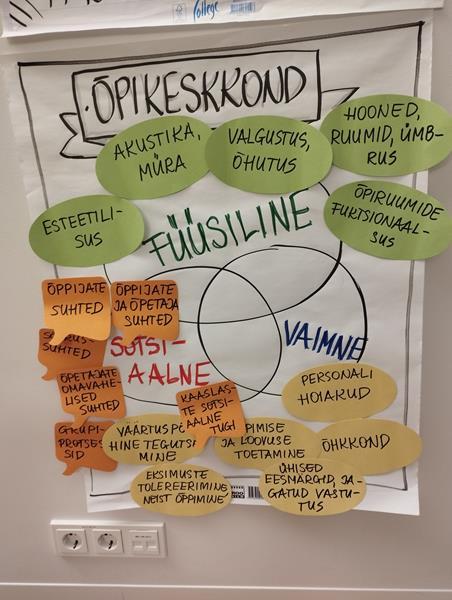 college
ÕPIKESKKOND
AKUSTIKA,
MÜRA
VALGUSTUS,
ÕHUTUS
HOONED,
RUUMID, ÜMB-
RUS
ESTEETILI-
SUS
ÕPIRUUMIDE
FUKTSIONAAL-
SUS
FÜÜSILINE
ÕPPIJATE
SUHTED
ÕPPIJATE
JA ÕPETAJA
SUHTED
SUHTED
SOTSI-
AALNE
VAIMNE
ÕPETAJATE
OMAVAHE-
LISED
SUHTED
PERSONALI
HOIAKUD
KAASLAS-
TE SOTSI-
AALNE
TUGI
GRUPI-
PROTSES-
SID
VÄÄRTUSPÕ
HINE TEGUTSE
MINE
JA LOOVUSE
TOETAMINE
ÕHKKOND
EKSIMUSTE
TOLEREERIMINE,
NEIST ÕPPIMINE
ÜHISED
EESMÄRGID, JA-
GATUD VASTU-
TUS